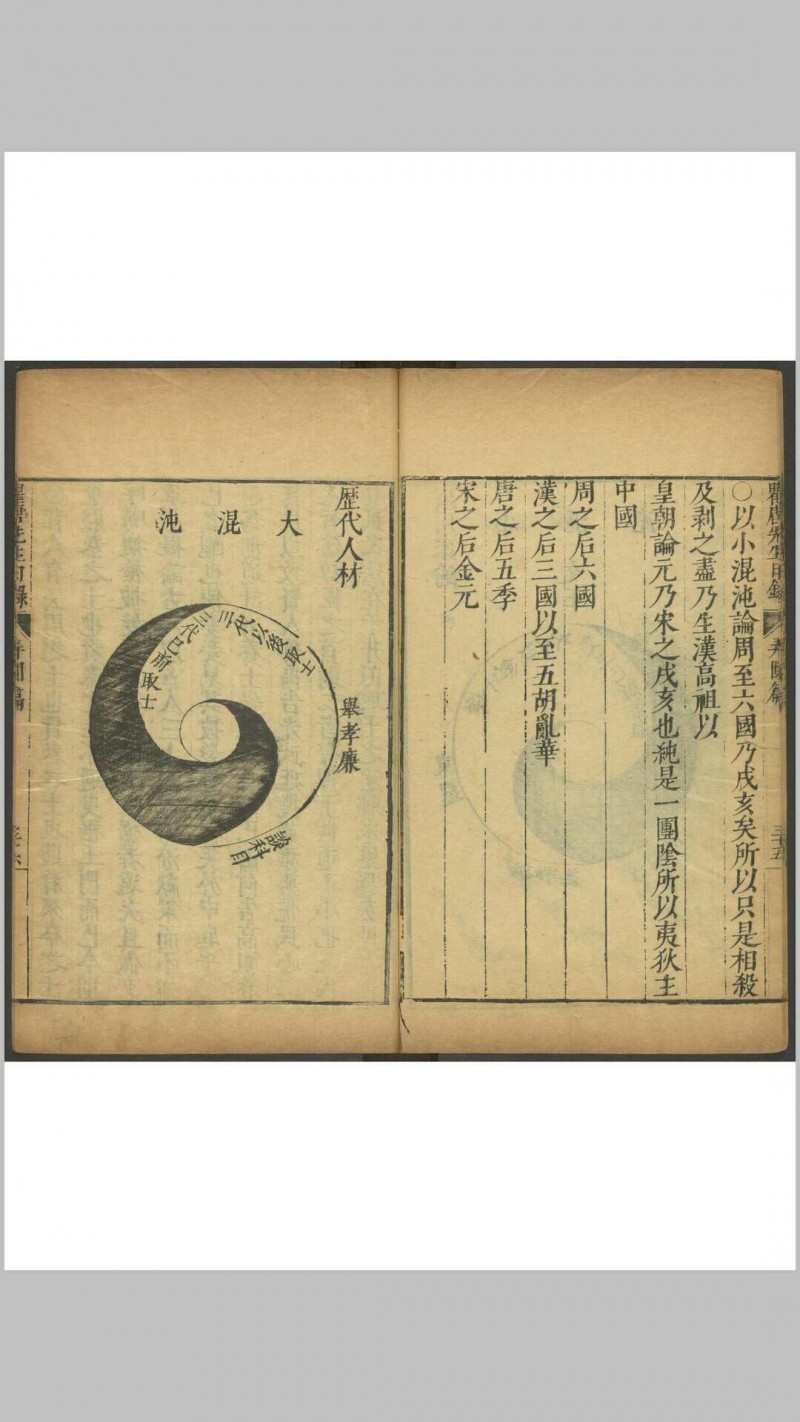 瞿唐先生日錄
弄圓篇
三十五
○以小混沌論周至六國乃戌亥矣所以只是相殺
及剥之盡乃生漢高祖以
皇朝論元乃宋之戌亥也純是一團陰所以夷狄主
中國
周之后六國
漢之后三國以至五胡亂華
唐之后五季
宋之后金元
歷代人材
大混沌
三代以後取士
三代已前取士
舉孝廉
設科目
瞿唐先生日錄
弄圓篇
三十六